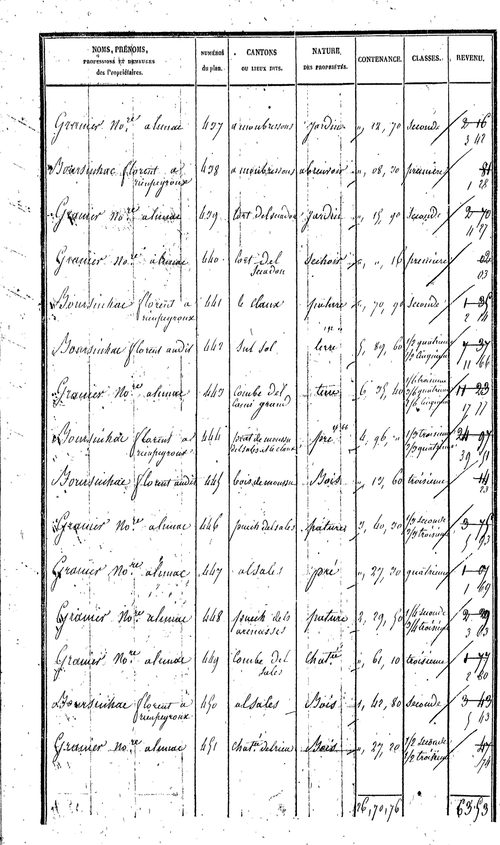 NOMS, PRÉNOMS, PROFESSIONS ET DEMEURES des Propriétaires. NUMÉRO du plan. CANTONS OU LIEUX DITS. NATURE DES PROPRIÉTÉS. CONTENANCE. CLASSES. REVENU.
Granier No.re a lunac 437 a moubressous jardin „ 12, 70 seconde 2 16
3 42
Boursinhac florent a rieupeyroux 438 a moubressous abreuvoir „ 08, 30 première 81
1 28
Granier No.re a lunac 439 jardin „ 15, 90 seconde 2 70
4 27
Granier No.re a lunac 440 Sechoir „ „ 16 première 02
03
Boursinhac florent a rieupeyroux 441 le claux pature „ 70, 90 Seconde 1 35
2 14
Boursinhac florent audit 442 Sul sol terre 5, 89, 60 1/2 quatrieme 1/2 cinquieme 7 37
11 66
Granier No.re a lunac 443 Combe del grand terre 6, 35, 40 11 23
17 77
Boursinhac florent a rieupeyroux 444 pré 4, 96, „ 1/4 troisieme 3/4 quatrieme 24 97
39 51
Boursinhac florent audit 445 bois de moussu Bois „ 13, 60 troisieme 14
23
Granier No.re a lunac 446 puech del sales patures 3, 40, 30 1/3 seconde 2/3 troisieme 3 75
5 93
Granier No.re a lunac 447 al sales pré „ 27, 30 quatrieme 1 07
1 69
Granier No.re a lunac 448 pueih dels pature 2, 29, 50 1/4 seconde 3/4 troisieme 2 29
3 63
Granier No.re a lunac 449 Combe del sales Chat.re „ 61, 10 troisieme 1 77
2 80
Boursinhac florent a rieupeyroux 450 al sales Bois 1, 42, 80 seconde 3 43
5 43
Granier No.re a lunac 451 Bois „ 27, 20 1/2 seconde 1/2 troisieme 47
74
26, 70, 76 63 53